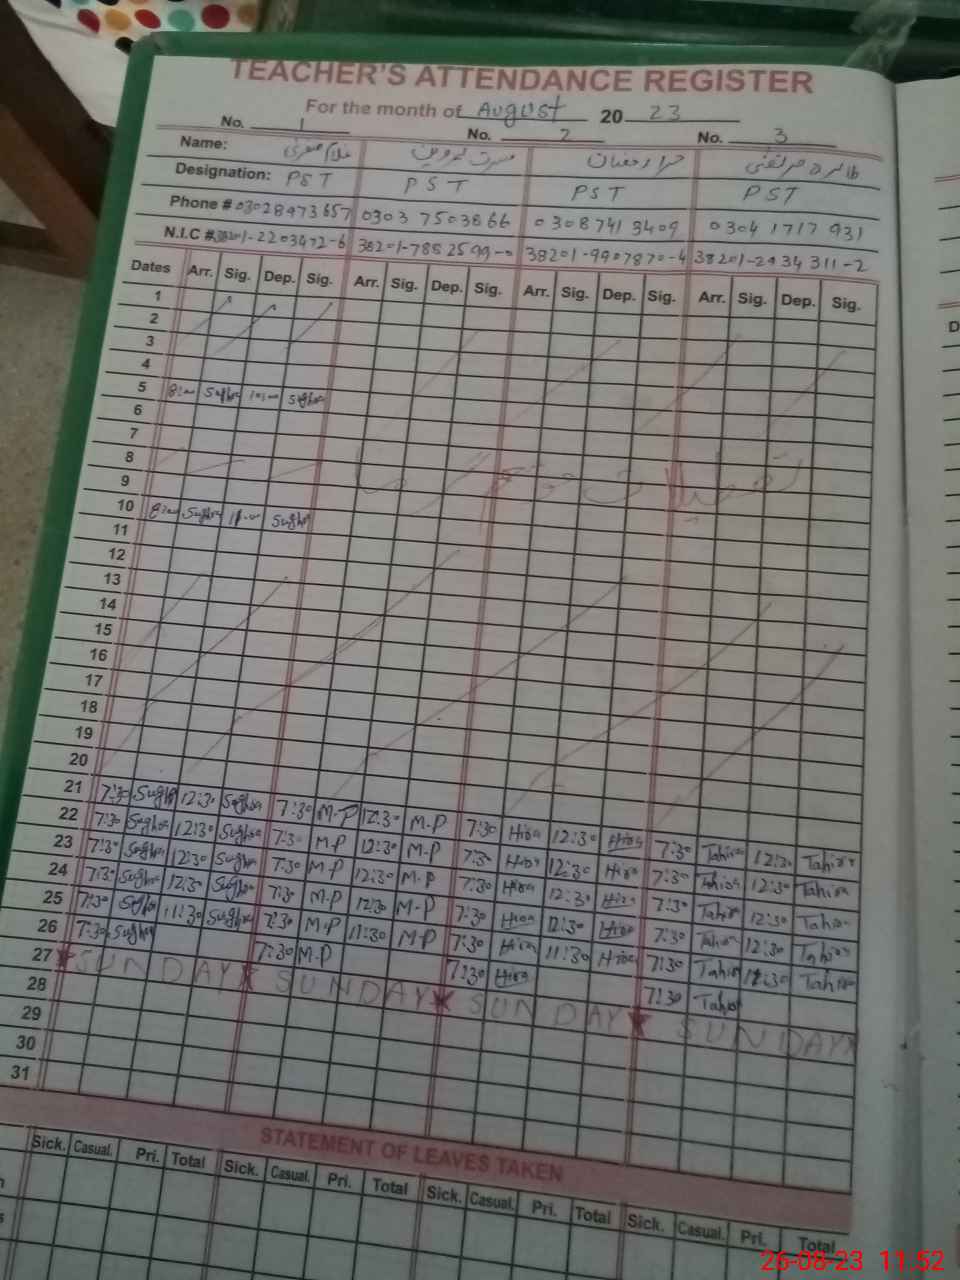 TEACHER'S ATTENDANCE REGISTER
For the month of August 2023
No. 1 No. 2 No. 3
Name: غلام صغریٰ مسرت پروین طاہرہ مرتضیٰ
Designation: PST PST PST PST
Phone # 03028973657 0303 7503866 0308741 3409 0304 1717 931
N.I.C #. 38201-2203472-6 38201-7852599-0 38201-9907870-4 38201-2934311-2
Dates Arr. Sig. Dep. Sig. Arr. Sig. Dep. Sig. Arr. Sig. Dep. Sig. Arr. Sig. Dep. Sig.
1
2
3
4
5 Sughra Sughra
6
7
8
تعطیلات موسم گرما
9
10 Sughra Sughra
11
12
13
14
15
16
17
18
19
20
21 7:30 Sughra 12:30 Sughra 7:30 M-P 12:30 M-P 7:30 Hira 12:30 Hira 7:30 Tahira 12:30 Tahira
22 7:30 Sughra 12:30 Sughra 7:30 M-P 12:30 M-P 7:30 Hira 12:30 Hira 7:30 Tahira 12:30 Tahira
23 7:30 Sughra 12:30 Sughra 7:30 M-P 12:30 M-P 7:30 Hira 12:30 Hira 7:30 Tahira 12:30 Tahira
24 7:30 Sughra 12:30 Sughra 7:30 M-P 12:30 M-P 7:30 Hira 12:30 Hira 7:30 Tahira 12:30 Tahira
25 7:30 Sughra 11:30 Sughra 7:30 M-P 11:30 M-P 7:30 Hira 11:30 Hira 7:30 Tahira 11:30 Tahira
26 7:30 Sughra 7:30 M-P 7:30 Hira 7:30 Tahira
27 SUNDAY SUNDAY SUNDAY SUNDAY
28
29
30
31
STATEMENT OF LEAVES TAKEN
Sick. Casual. Pri. Total Sick. Casual. Pri. Total Sick. Casual. Pri. Total Sick. Casual. Pri. Total
26-08-23 11:52